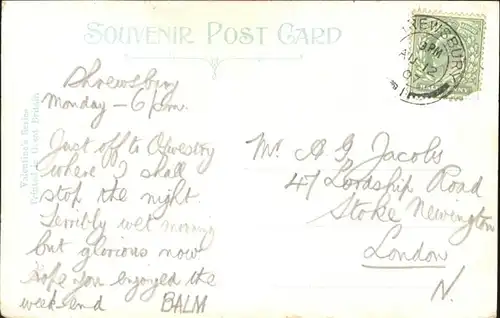 SOUVENIR POST CARD
Shrewsbury
Monday - 6 pm.
Just off to Oswestry
where I shall
stop the night.
Terribly wet morning
but glorious now
hope you enjoyed the
week end BALM
Mr. A G Jacobs
47 Lordship Road
Stoke Newington
London
N.
Valentine's Series
Printed in Great Britain
REWSBURY
PM
AU 12